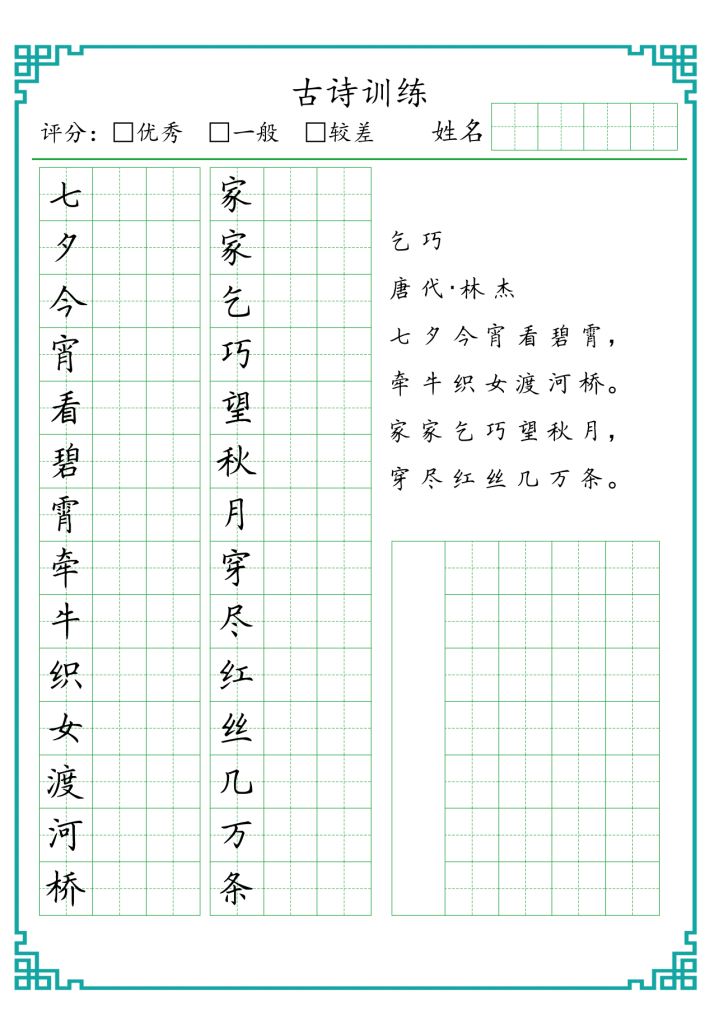 古诗训练
评分：□优秀 □一般 □较差 姓名
七
夕
今
宵
看
碧
霄
牵
牛
织
女
渡
河
桥
家
家
乞
巧
望
秋
月
穿
尽
红
丝
几
万
条
乞巧
唐代·林杰
七夕今宵看碧霄，
牵牛织女渡河桥。
家家乞巧望秋月，
穿尽红丝几万条。